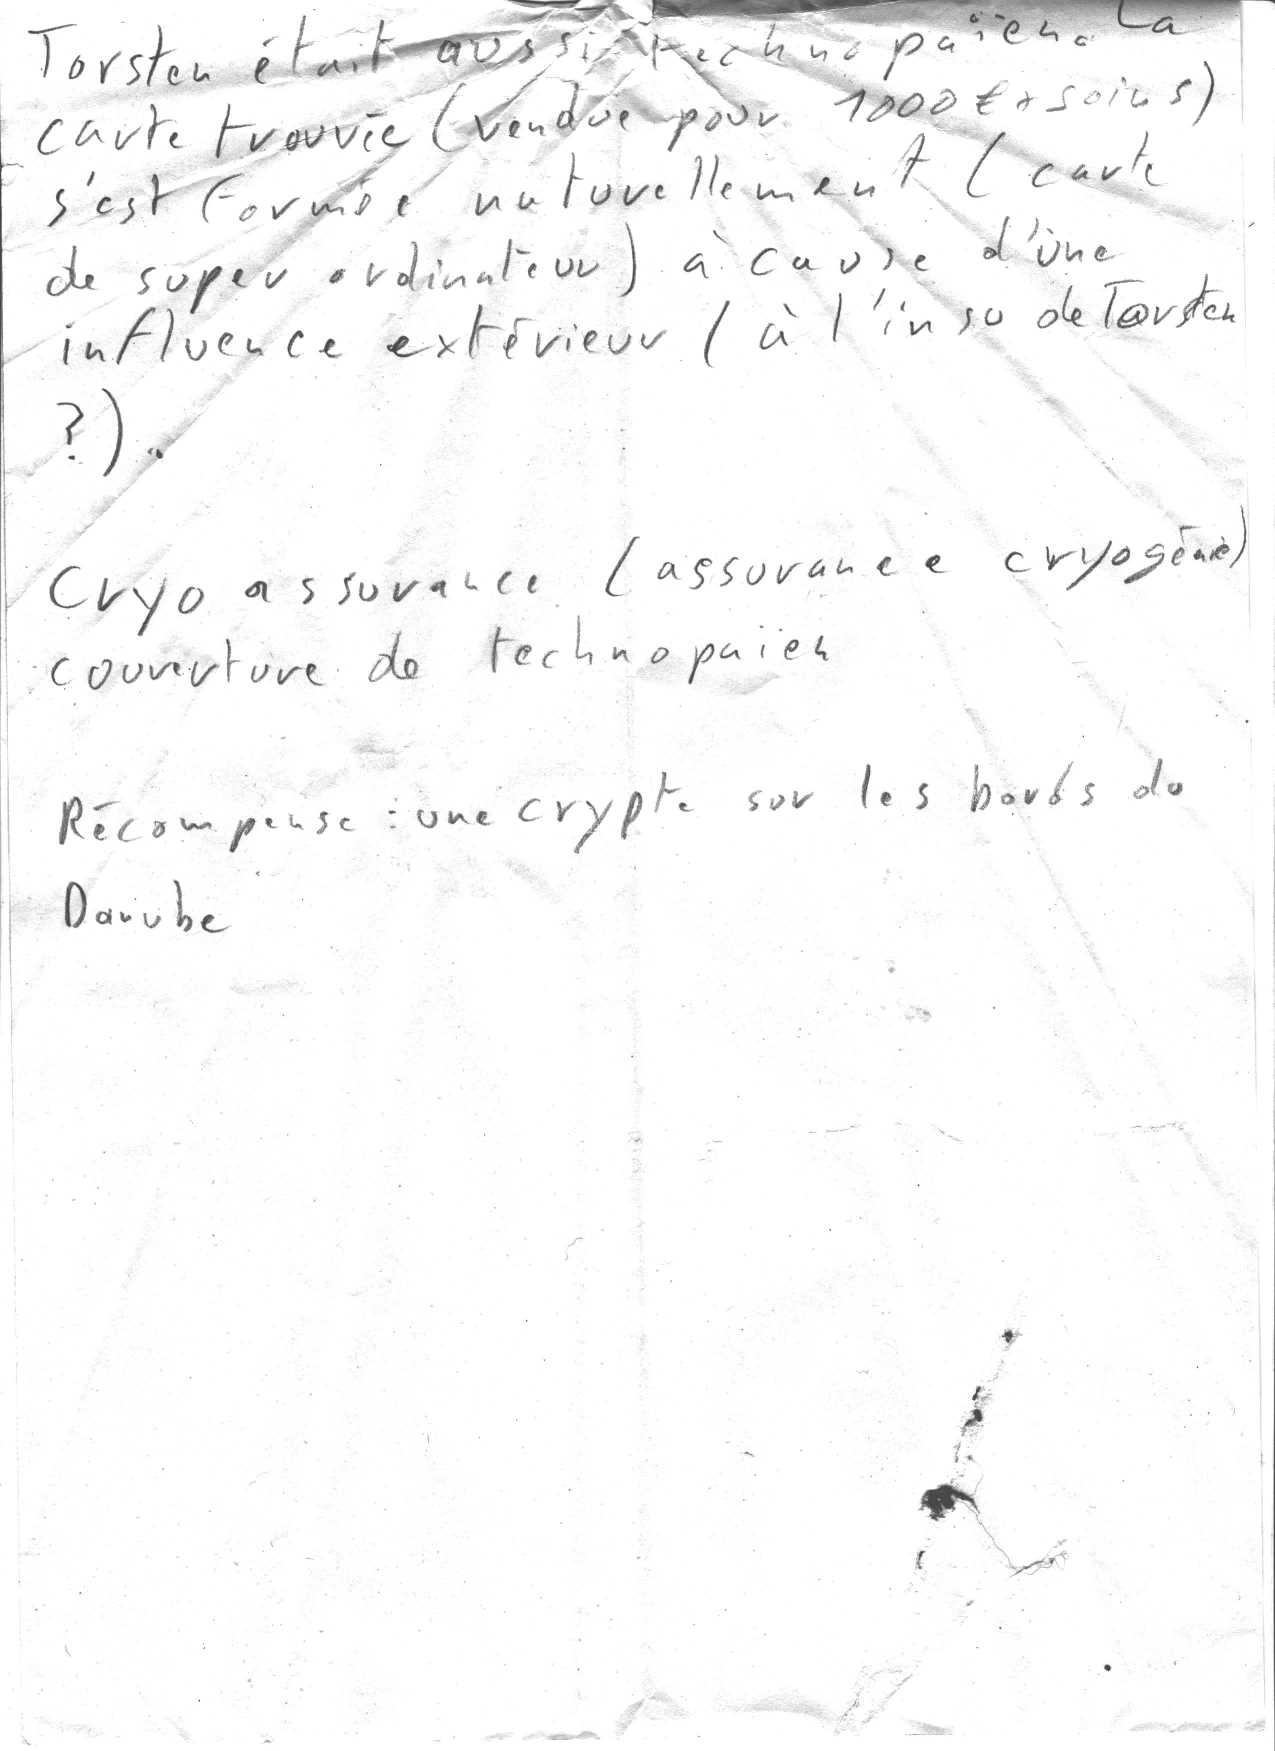 Torsten était aussi technopaïen. La
carte trouvée (vendue pour 1000 € + soins)
s'est formée naturellement (carte
de super ordinateur) à cause d'une
influence extérieur (à l'insu de Torsten
?).
Cryo assurance (assurance cryogénie)
couverture de technopaïen
Récompense : une crypte sur les bords du
Danube